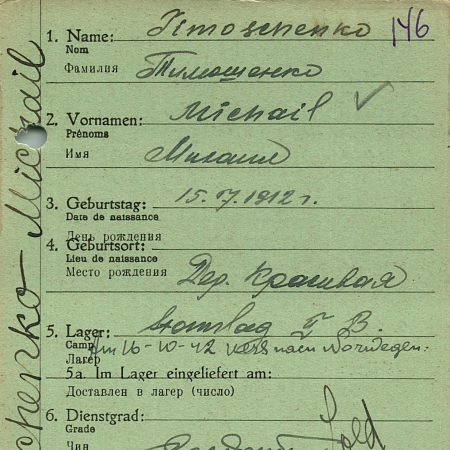 146
1. Name: Timoschenko
Nom
Фамилия Тимошенко
2. Vornamen: Michail
Prénoms
Имя Михаил
3. Geburtstag: 15. 7. 1912 г.
Date de naissance
День рождения
4. Geburtsort:
Lieu de naissance
Место рождения Дер. Красивая
5. Lager: Stammlag I B.
Camp Am 16-10-42 vers. nach Norwegen.
Лагерь
5a. Im Lager eingeliefert am:
Доставлен в лагерь (число)
6. Dienstgrad: Sold
Grade
Чин
chenko - Michail